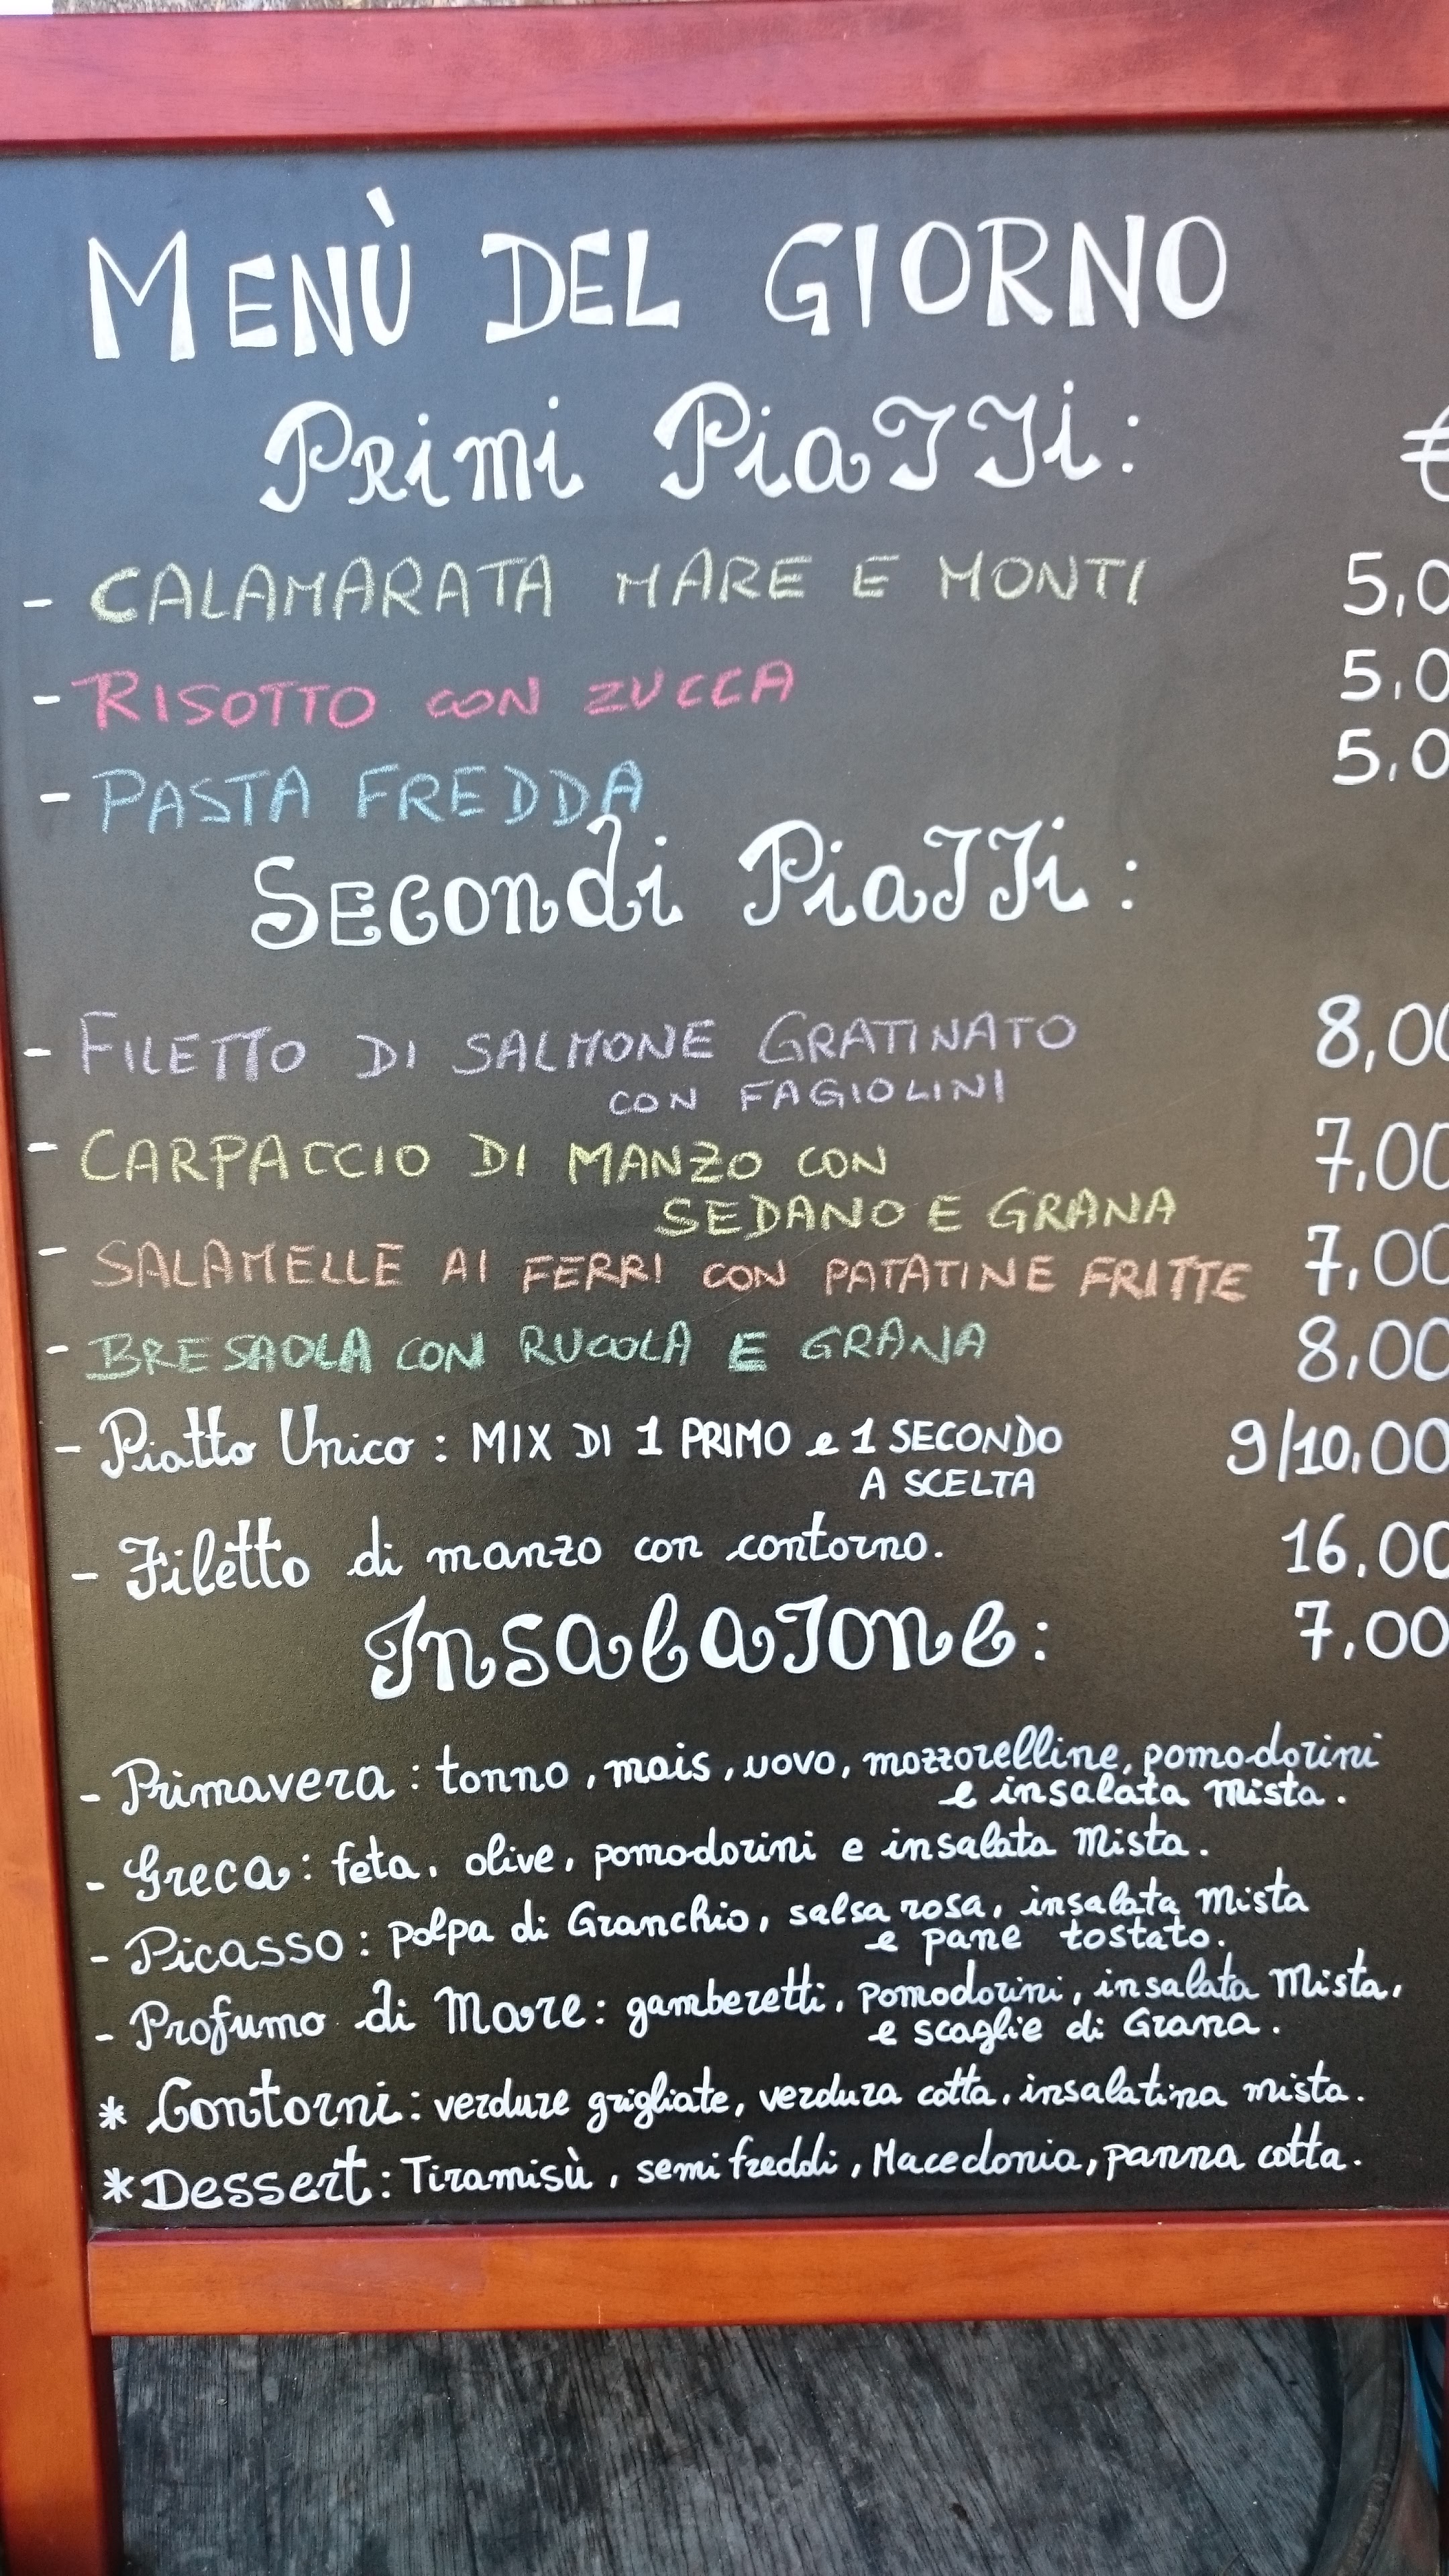 MENÙ DEL GIORNO
Primi Piatti: €
- CALAMARATA MARE E MONTI 5,0
- RISOTTO CON ZUCCA 5,0
- PASTA FREDDA 5,0
Secondi Piatti:
- FILETTO DI SALMONE GRATINATO 8,00
CON FAGIOLINI
- CARPACCIO DI MANZO CON 7,00
SEDANO E GRANA
- SALAMELLE AI FERRI CON PATATINE FRITTE 7,00
- BRESAOLA CON RUCOLA E GRANA 8,00
- Piatto Unico: MIX DI 1 PRIMO e 1 SECONDO 9/10,00
A SCELTA
- Filetto di manzo con contorno. 16,00
Insalatone: 7,00
- Primavera: tonno, mais, uovo, mozzorelline, pomodorini
e insalata Mista.
- Greca: feta, olive, pomodorini e insalata Mista.
- Picasso: polpa di Granchio, salsa rosa, insalata Mista
e pane tostato.
- Profumo di Mare: gamberetti, pomodorini, insalata Mista,
e scaglie di Grana.
* Contorni: verdure grigliate, verdura cotta, insalatina mista.
* Dessert: Tiramisù, semifreddi, Macedonia, panna cotta.